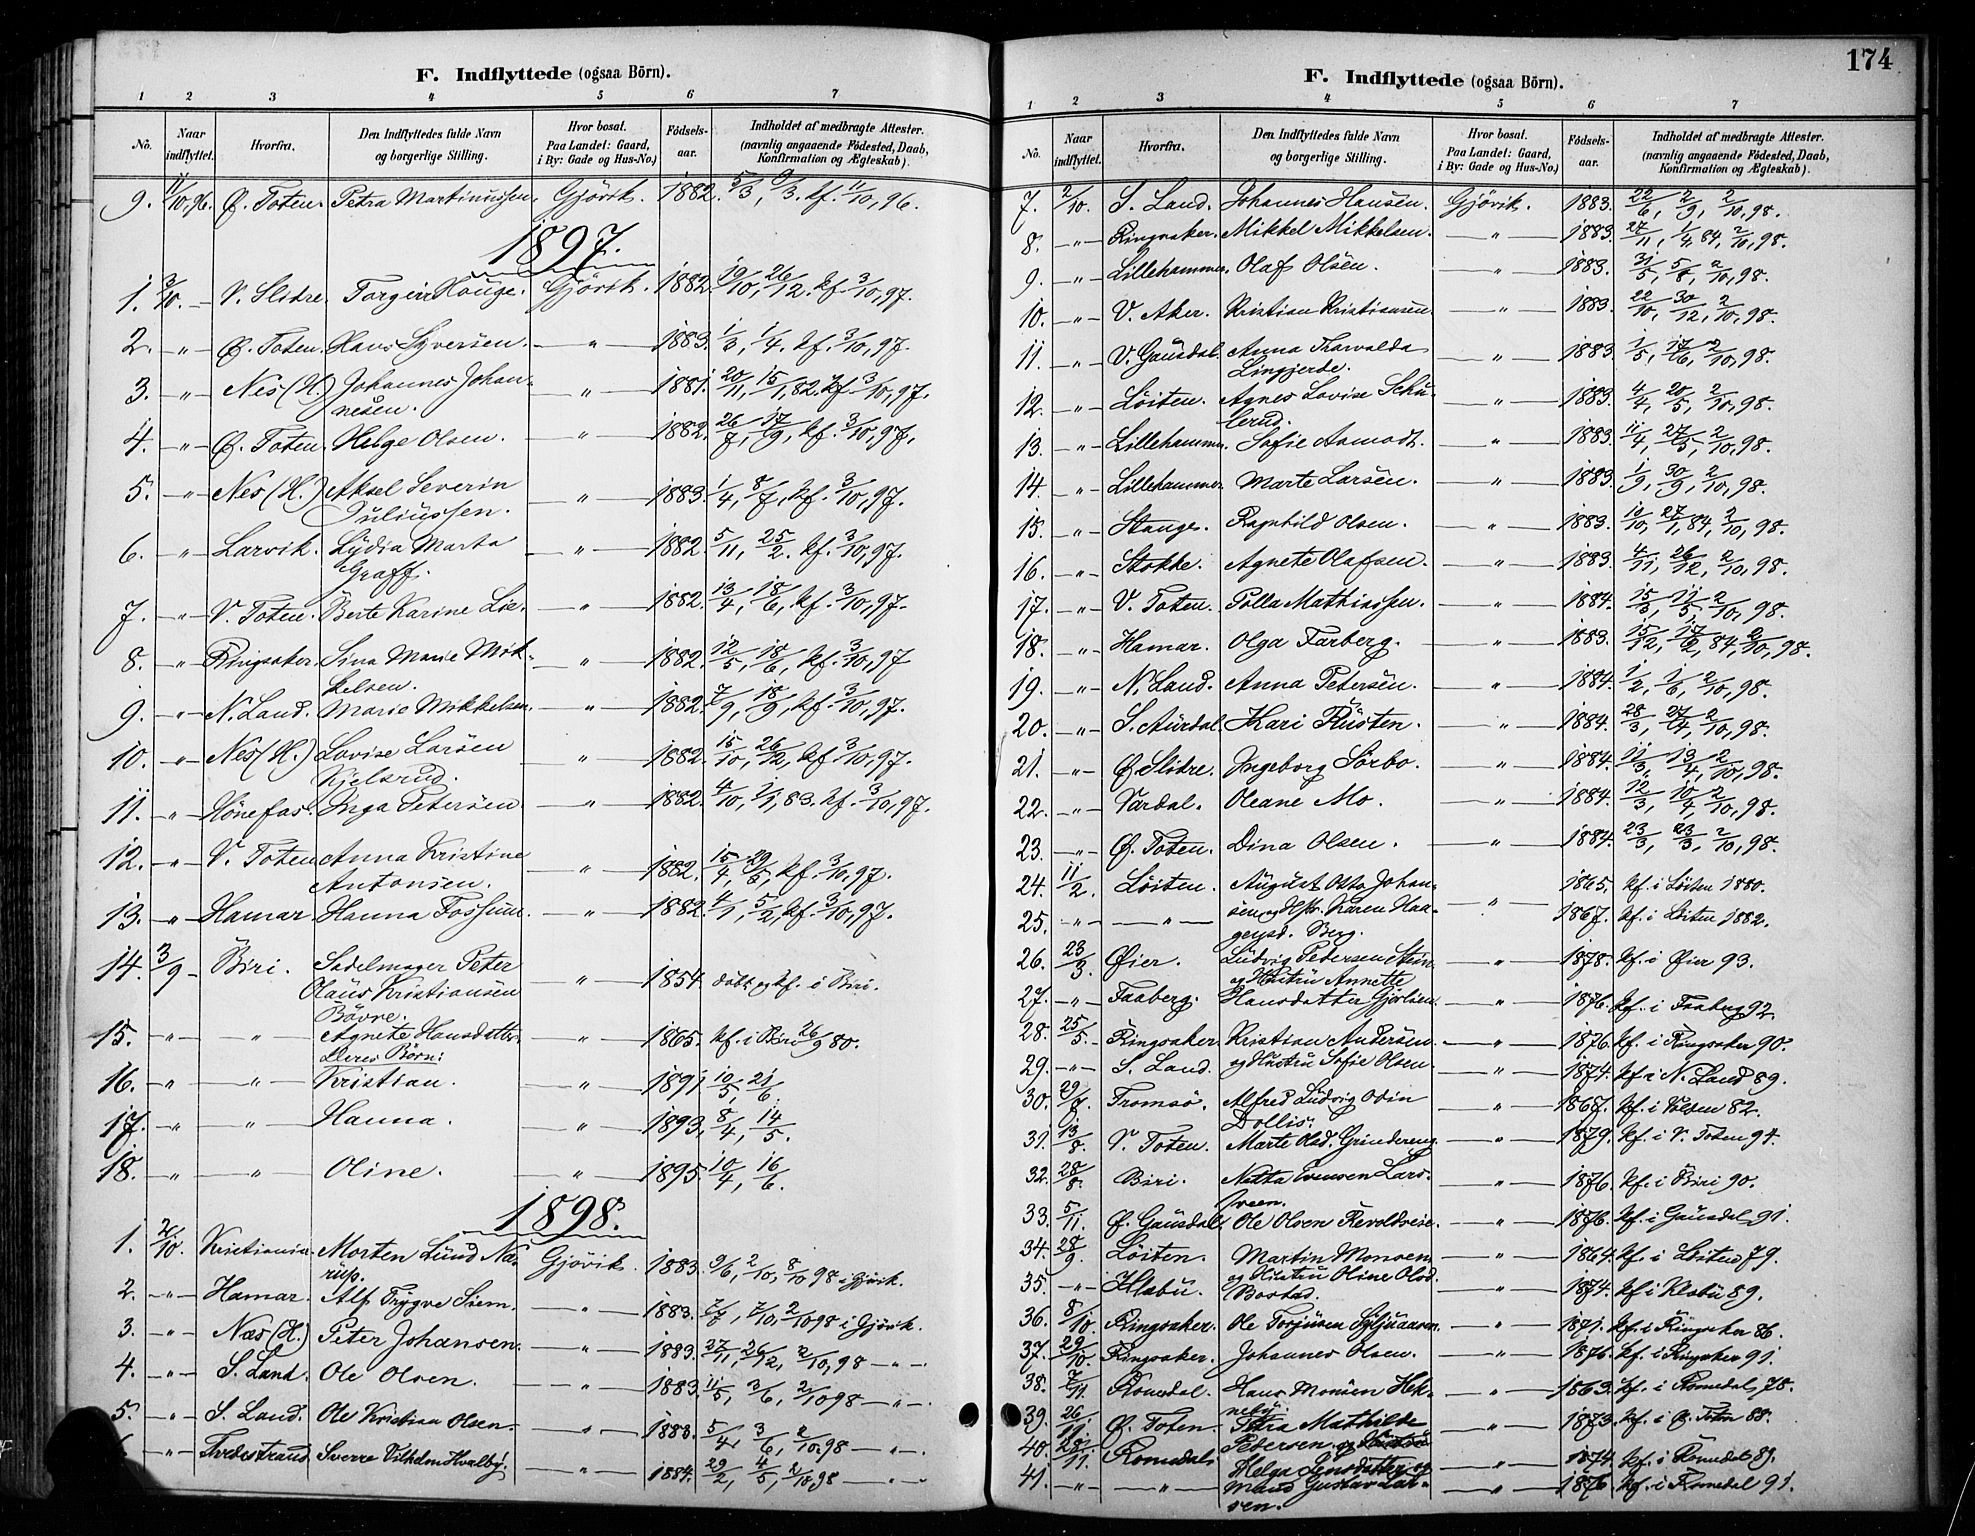 F. Indflyttede (ogsaa Börn).
1 2 3 4 5 6 7
No. Naar indflyttet. Hvorfra. Den Indflyttedes fulde Navn og borgerlige Stilling. Hvor bosat. Paa Landet: Gaard, i By: Gade og Hus-No.) Födsels-aar. Indholdet af medbragte Attester. (navnlig angaaende Födested, Daab, Konfirmation og Ægteskab).
9. 11/10.96. Ø. Toten. Petra Martinussen. Gjövik. 1882. 5/3, 9/3. kf. 11/10, 96.
1897.
1. 3/10. V. Slidre. Torgeir Hauge. Gjövik. 1882. 19/10, 26/12. kf. 3/10, 97.
2. -"- Ø. Toten. Hans Syversen. " 1883. 1/3, 1/4. kf. 3/10, 97.
3. -"- Nes (H.) Johannes Johan-
nesen. " 1881. 20/11, 15/1, 82. kf. 3/10, 97.
4. -"- Ø. Toten. Helge Olsen. " 1882. 26/7, 17/9, kf. 3/10, 97.
5. -"- Nes (H.) Aksel Severin
Juliussen. " 1883. 1/4, 8/7, kf. 3/10, 97.
6. " Larvik. Lydia Marta
Graff. " 1882. 5/11, 25/2. kf. 3/10, 97.
7. -"- V. Toten. Berte Karine Lie. " 1882. 13/4, 18/6, kf. 3/10, 97.
8. " Ringsaker. Sina Marie Mik-
kelsen. " 1882. 12/5, 18/6, kf. 3/10, 97
9. -"- N. Land. Marie Mikkelsen. " 1882. 7/9, 18/9, kf. 3/10, 97.
10. -"- Nes (H.) Lovise Larsen
Kjelsrud. " 1882. 15/10, 26/12, kf. 3/10, 97.
11. -"- Hönefos. Inga Petersen " 1882. 4/10, 1/1, 83. kf. 3/10, 97.
12. -"- V. Toten Anna Kristine
Antonsen. " 1882. 15/4, 29/5, kf. 3/10, 97.
13. " Hamar Hanna Fossum. " 1882. 4/1, 5/2, kf. 3/10, 97.
14. 3/9 Biri. Sadelmager Peter
Olaus Kristiansen
Bövre. " 1854. döbt og kf. i Biri.
15. -"- " Agnete Hansdatter.
Deres Börn: " 1865. kf. i Biri 26/9 80.
16. -"- " Kristian. " 1891 10/5, 21/6.
17. " " Hanna. " 1893. 8/4, 14/5.
18. " " Oline. " 1895. 10/4, 16/6.
1898.
1. 2/10. Kristiania Morten Lund Næs-
rup. Gjövik. 1883. 9/6, 2/10, 8/10 98 i Gjövik.
2. -"- Hamar. Alf Trygve Siem. " 1883. 7/7, 7/10, 2/10 98 i Gjövik.
3. -"- Næs (H.) Peter Johansen. " 1883. 27/11, 26/12, 2/10, 98 -"-
4. -"- S. Land. Ole Olsen. " 1883. 11/5, 3/6, 2/10 98 -"-
5. -"- S. Land. Ole Kristian Olsen. " 1883. 5/4, 3/6, 2/10. 98 -"-
-"- Tvedestrand Sverre Vilhelm Hvalby. " 1884. 29/2, 4/5, 2/10 98 -"-
174
F. Indflyttede (ogsaa Börn).
1 2 3 4 5 6 7
No. Naar indflyttet. Hvorfra. Den Indflyttedes fulde Navn og borgerlige Stilling. Hvor bosat. Paa Landet: Gaard, i By: Gade og Hus-No.) Födsels-aar. Indholdet af medbragte Attester. (navnlig angaaende Födested, Daab, Konfirmation og Ægteskab).
7. 2/10. S. Land. Johannes Hansen. Gjövik. 1883. 22/6, 2/9, 2/10, 98.
8. -"- Ringsaker. Mikkel Mikkelsen. " 1883. 27/11, 1/4 84, 2/10, 98.
9. -"- Lillehammer. Olaf Olsen. " 1883. 31/5, 5/8, 2/10, 98.
10. -"- V. Aker. Kristian Kristiansen. " 1883. 22/10, 30/12, 2/10, 98.
11. -"- V. Gausdal. Anna Thorvalda
Lingjerde. " 1883. 1/5, 17/6, 2/10, 98.
12. -"- Löiten. Agnes Lovise Schu-
lerud. " 1883. 4/4, 20/5, 2/10, 98.
13. -"- Lillehammer. Sofie Aamodt. " 1883. 11/4, 27/5, 2/10, 98.
14. -"- Lillehammer. Marte Larsen. " 1883. 1/9, 30/9, 2/10, 98.
15. -"- Stange. Ragnhild Olsen. " 1883. 19/10, 27/1, 84, 2/10, 98.
16. -"- Stokke. Agnete Olafsen. " 1883. 4/11, 26/12, 2/10, 98.
17. -"- V. Toten. Polla Mathiassen. " 1884. 15/3, 11/5, 2/10, 98.
18. -"- Hamar. Olga Farberg. " 1883. 15/12, 17/2, 84, 2/10, 98.
19. -"- N. Land. Anna Petersen. " 1884. 1/2, 1/6, 2/10, 98.
20. -"- S. Aurdal. Kari Rusten. " 1884. 28/3, 27/4, 2/10, 98.
21. -"- Ø. Slidre. Ingeborg Sörbo. " 1884. 11/3, 13/4, 2/10, 98.
22. -"- Vardal. Oleane Mo. " 1884. 12/3, 10/4, 2/10, 98.
23. -"- Ø. Toten. Dina Olsen. " 1884. 23/3, 23/3, 2/10, 98.
24. 11/2. Löiten. August Otto Johan- 1865. kf. i Löiten 1880.
25. " -"- sen og Hstr. Karen Haa-
gensd. Berg. " 1867. kf. i Löiten 1882.
26. 23/3. Øier. Ludvig Pedersen Stein " 1878. kf. i Øier 93.
og Hustru Annette
27. -"- Faaberg. Hansdatter Gjörlien. " 1876. kf. i Faaberg 92.
28. 25/5. Ringsaker. Kristian Andersen " 1876. kf. i Ringsaker 90.
29. -"- S. Land. og Hustru Sofie Olsen. " 1874. kf. i N. Land 89.
30. 29/7. Tromsö. Alfred Ludvig Odin
Dollis. " 1867. kf. i Volden 82.
31. 13/8. V. Toten. Marte Olsd. Grindereng " 1879. kf. i V. Toten 94.
32. 28/8. Biri. Netta Evensen Lars-
sveen. " 1876. kf. i Biri 90.
33. 5/11. Ø. Gausdal. Ole Olsen Revoldreise. " 1876. kf. i Gausdal 91.
34. 28/9. Löiten. Martin Monsen " 1864. kf. i Löiten 79.
35. " Klæbu. og Hustru Oline Olsd.
Bostad. " 1874. kf. i Klæbu 89.
36. 8/10. Ringsaker. Ole Torjusen Syljuaasen. " 1871. kf. i Ringsaker 86.
37. 29/10. Ringsaker. Johannes Olsen. " 1876. kf. i Ringsaker 91.
38. 7/11. Romedal. Hans Monsen Hek-
neby. " 1863. kf. i Romedal, 78.
39. 26/11. Ø. Toten. Thra Mathilde
Pedersen " 1873. kf. i Ø. Toten 88.
40. 28/11. Romedal. Helga Jensdatter og " 1874. kf. i Romedal 89.
41. " -"- Mand Gustav Lar-
sen. " 1876. kf. i Romedal 91.